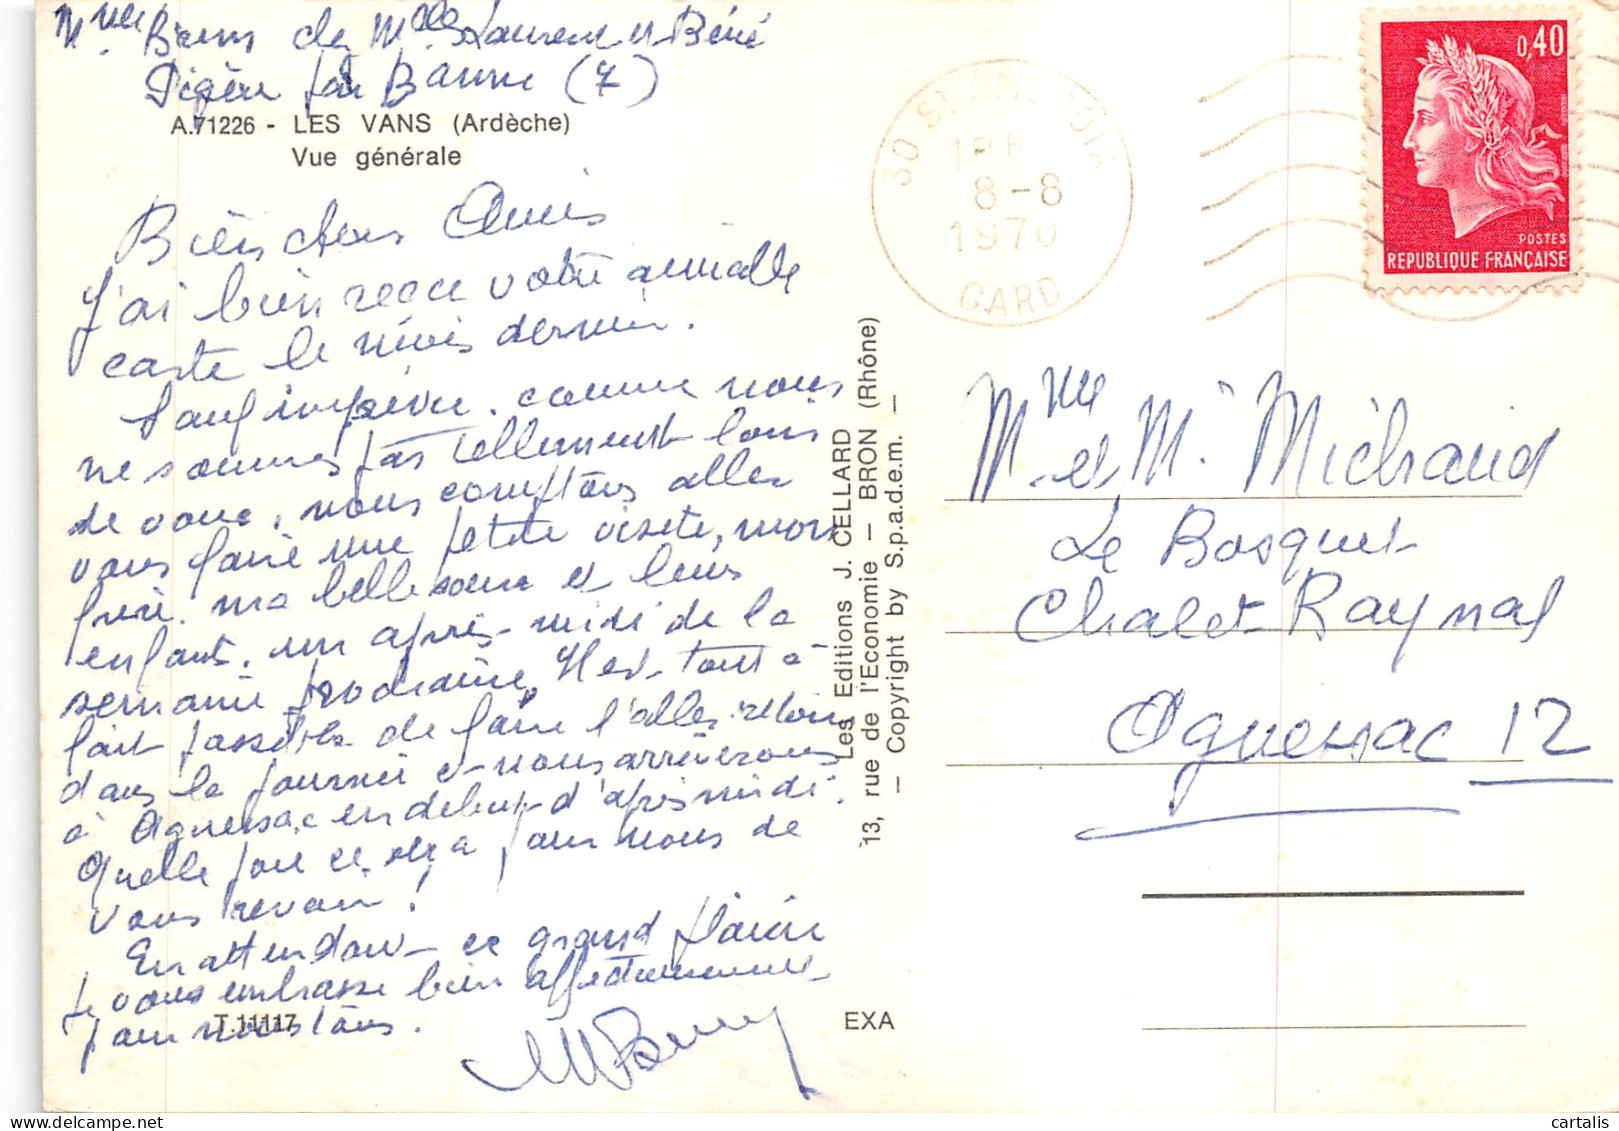 Mme Brun de Mlle Laurent et Béné
Pigère par Banne (7)
A.71226 - LES VANS (Ardèche)
Vue générale
Bien chers Amis
J'ai bien reçu votre aimable
carte le mois dernier.
Sauf imprévu, comme nous
ne sommes pas tellement loin
de vous, nous comptons aller
vous faire une petite visite, mon
frère, ma belle soeur et leurs
enfants, un après-midi de la
semaine prochaine. Il est tout à
fait possible de faire l'aller retour
dans la journée et nous arriverons
à Aguessac en début d'après midi.
Quelle joie ce sera pour nous de
vous revoir !
En attendant ce grand plaisir
je vous embrasse bien affectueusement
pour nous tous.
T.11117
EXA
Les Editions J. CELLARD
13, rue de l'Economie - BRON (Rhône)
- Copyright by S.p.a.d.e.m. -
30 ST AMBROIX
8-8
1970
GARD
0,40
POSTES
REPUBLIQUE FRANÇAISE
Mme et Mr Michaud
Le Bosquet
Chalet Raynal
Aguessac 12
cartalis
cartalis.com